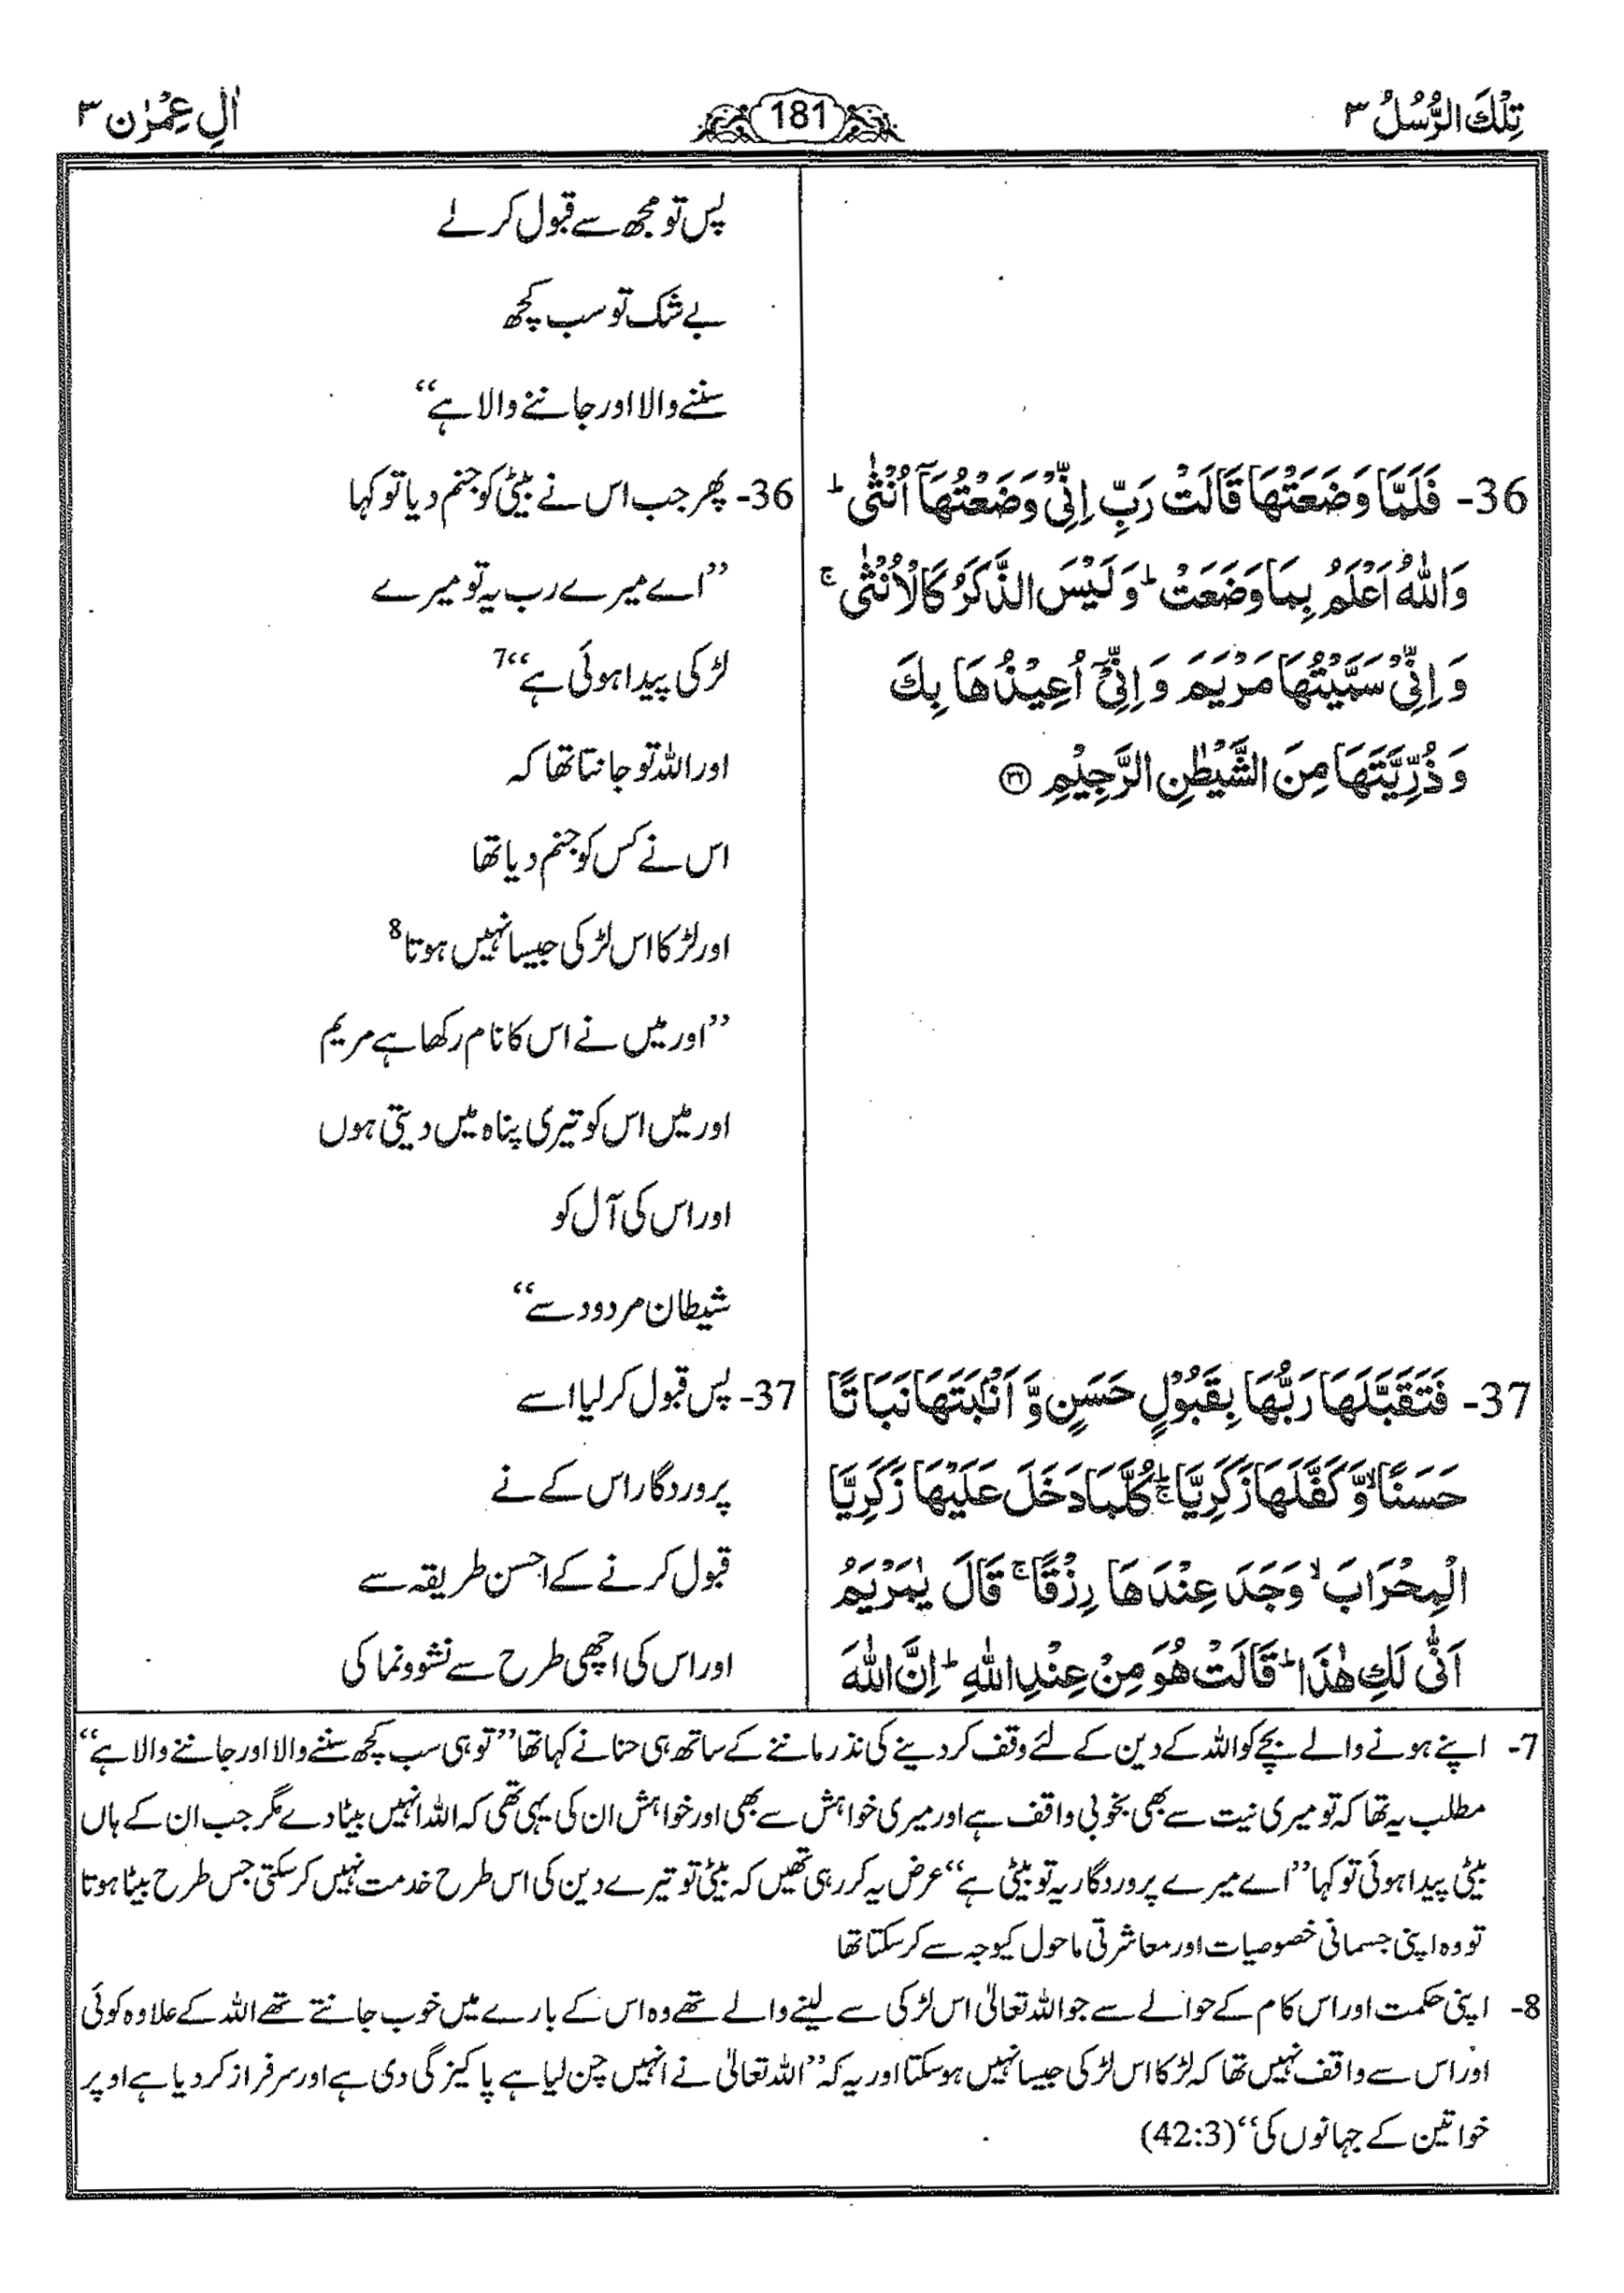 تِلْكَ الرُّسُلُ ٣
181
اٰلِ عِمْرٰن ٣
36- فَلَمَّا وَضَعَتْهَا قَالَتْ رَبِّ اِنِّیْ وَضَعْتُهَاۤ اُنْثٰی ؕ
وَاللّٰهُ اَعْلَمُ بِمَا وَضَعَتْ ؕ وَلَيْسَ الذَّكَرُ كَالْاُنْثٰی ۚ
وَ اِنِّیْ سَمَّيْتُهَا مَرْيَمَ وَ اِنِّیْۤ اُعِيْذُهَا بِكَ
وَ ذُرِّيَّتَهَا مِنَ الشَّيْطٰنِ الرَّجِيْمِ ﴿۳۶﴾
37- فَتَقَبَّلَهَا رَبُّهَا بِقَبُوْلٍ حَسَنٍ وَّ اَنْۢبَتَهَا نَبَاتًا
حَسَنًا ۙ وَّ كَفَّلَهَا زَكَرِيَّا ؕۚ كُلَّمَا دَخَلَ عَلَيْهَا زَكَرِيَّا
الْمِحْرَابَ ۙ وَجَدَ عِنْدَهَا رِزْقًا ۚ قَالَ يٰمَرْيَمُ
اَنّٰی لَكِ هٰذَا ؕ قَالَتْ هُوَ مِنْ عِنْدِ اللّٰهِ ؕ اِنَّ اللّٰهَ
پس تو مجھ سے قبول کر لے
بے شک تو سب کچھ
سننے والا اور جاننے والا ہے‘‘
36- پھر جب اس نے بیٹی کو جنم دیا تو کہا
’’اے میرے رب یہ تو میرے
لڑکی پیدا ہوئی ہے‘‘7
اور اللہ تو جانتا تھا کہ
اس نے کس کو جنم دیا تھا
اور لڑکا اس لڑکی جیسا نہیں ہوتا8
’’اور میں نے اس کا نام رکھا ہے مریم
اور میں اس کو تیری پناہ میں دیتی ہوں
اور اس کی آل کو
شیطان مردود سے‘‘
37- پس قبول کر لیا اسے
پروردگار اس کے نے
قبول کرنے کے احسن طریقہ سے
اور اس کی اچھی طرح سے نشوونما کی
7- اپنے ہونے والے بچے کو اللہ کے دین کے لئے وقف کر دینے کی نذر ماننے کے ساتھ ہی حنا نے کہا تھا ’’تو ہی سب کچھ سننے والا اور جاننے والا ہے‘‘
مطلب یہ تھا کہ تو میری نیت سے بھی بخوبی واقف ہے اور میری خواہش سے بھی اور خواہش ان کی یہی تھی کہ اللہ انہیں بیٹا دے مگر جب ان کے ہاں
بیٹی پیدا ہوئی تو کہا ’’اے میرے پروردگار یہ تو بیٹی ہے‘‘ عرض یہ کر رہی تھیں کہ بیٹی تو تیرے دین کی اس طرح خدمت نہیں کر سکتی جس طرح بیٹا ہوتا
تو وہ اپنی جسمانی خصوصیات اور معاشرتی ماحول کیوجہ سے کر سکتا تھا
8- اپنی حکمت اور اس کام کے حوالے سے جو اللہ تعالیٰ اس لڑکی سے لینے والے تھے وہ اس کے بارے میں خوب جانتے تھے اللہ کے علاوہ کوئی
اور اس سے واقف نہیں تھا کہ لڑکا اس لڑکی جیسا نہیں ہو سکتا اور یہ کہ ’’اللہ تعالیٰ نے انہیں چن لیا ہے پاکیزگی دی ہے اور سرفراز کر دیا ہے اوپر
خواتین کے جہانوں کی‘‘ (42:3)